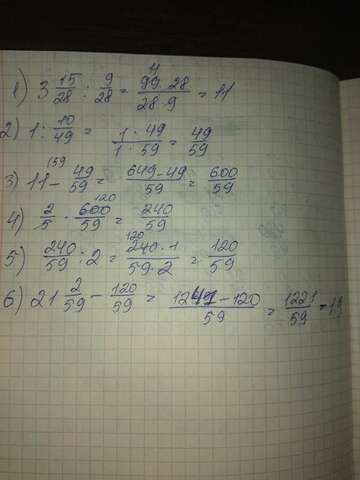 1) 3 15/28 : 9/28 = 99·28/28·9 = 11
2) 1 : 10/49 = 1·49/1·59 = 49/59
3) 11 - 49/59 = 649-49/59 = 600/59
4) 2/5 · 600/59 = 240/59
5) 240/59 : 2 = 240·1/59·2 = 120/59
6) 21 2/59 - 120/59 = 1241-120/59 = 1221/59 = 19